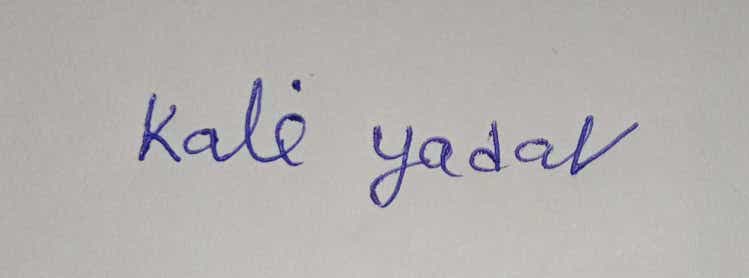 Kali yadav